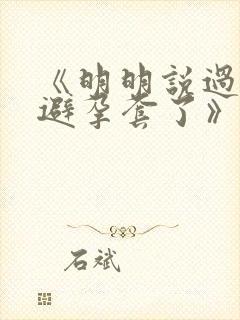 《明明說過
避孕套了》
石斌